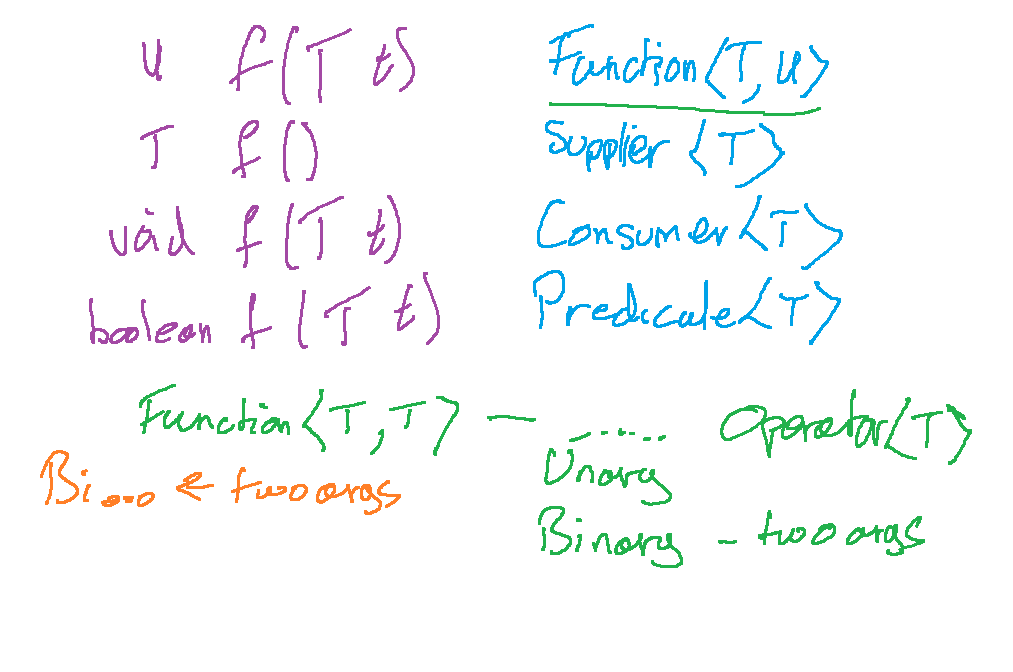 U f(T t) Function<T, U>
T f() Supplier<T>
void f(T t) Consumer<T>
boolean f(T t) Predicate<T>
Function<T,T> — ...... Operator<T>
Bi... ← two args Unary
Binary - two args